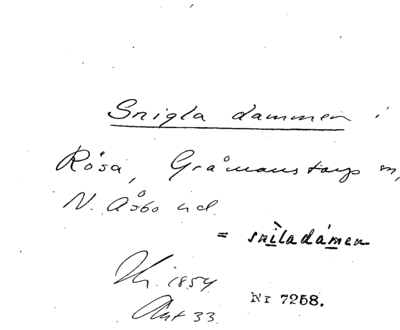 Snigla dammen i
Rösa, Gråmanstorps sn,
N. Åsbo hd.
= snìladámen
1854
33
Nr 7268.